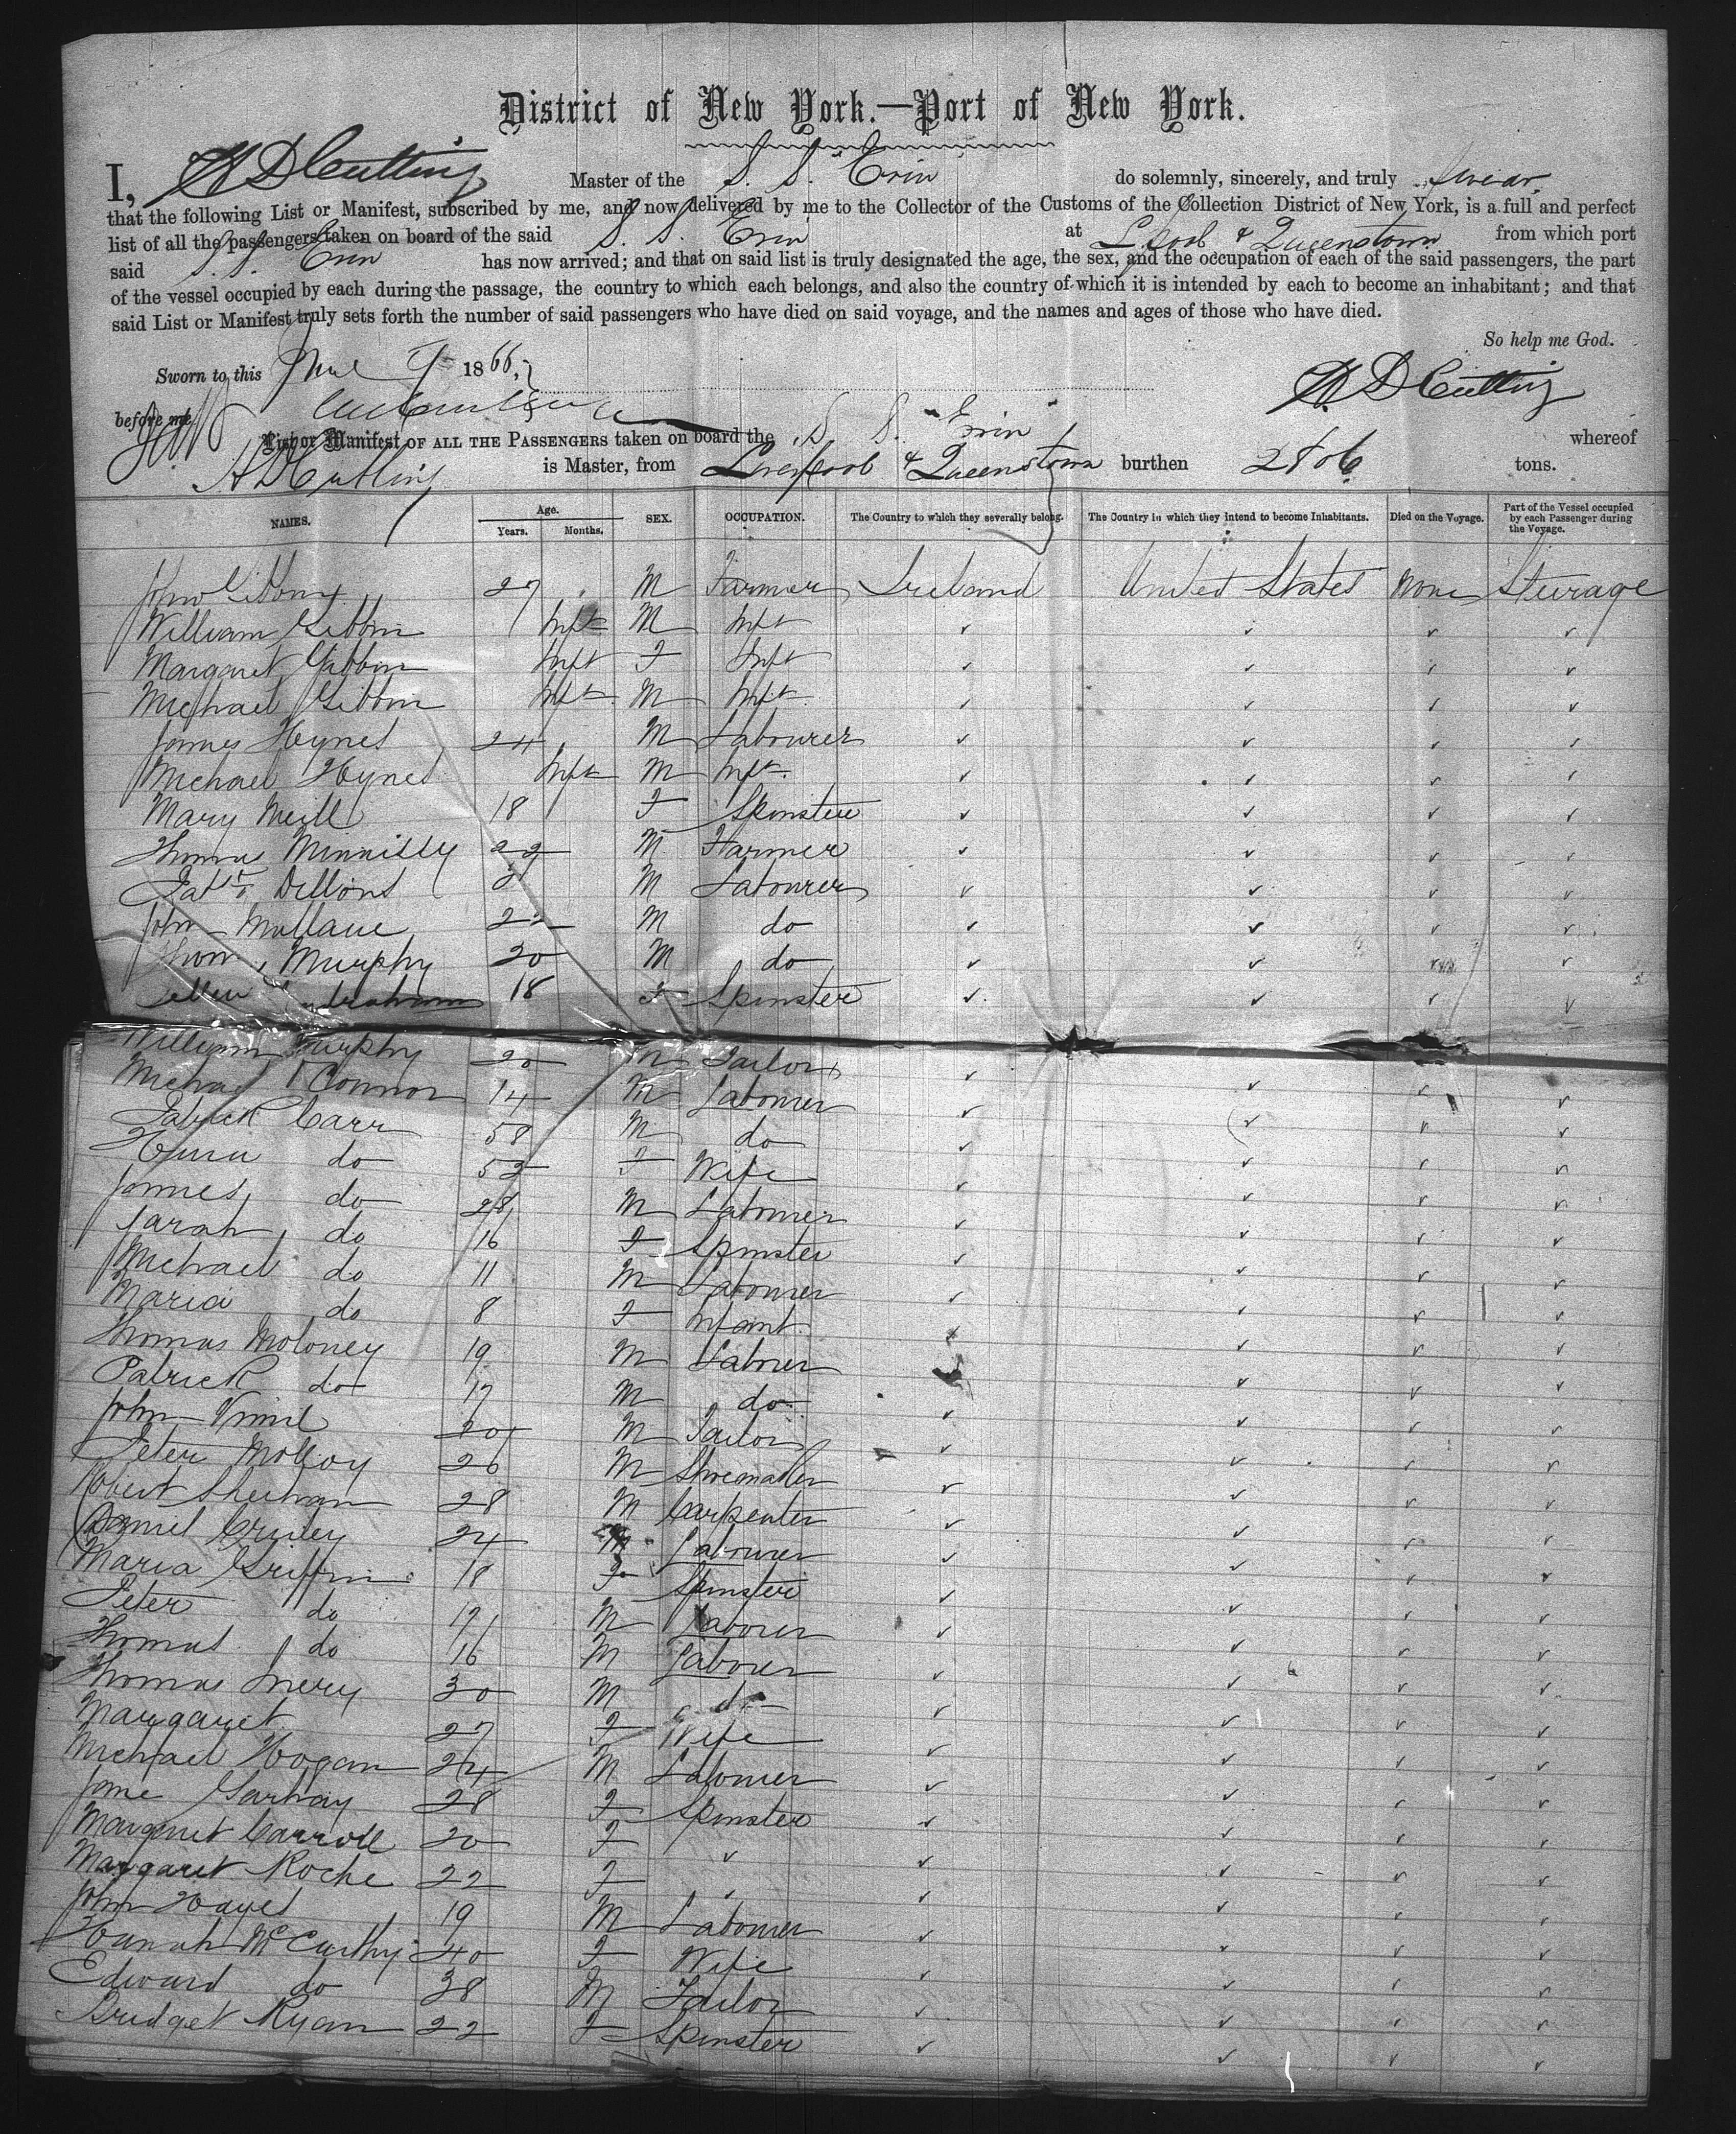 District of New York.—Port of New York.
I, H D Cutting Master of the S. S. Erin do solemnly, sincerely, and truly swear,
that the following List or Manifest, subscribed by me, and now delivered by me to the Collector of the Customs of the Collection District of New York, is a full and perfect
list of all the passengers taken on board of the said S. S. Erin at L.pool & Queenstown from which port
said S. S. Erin has now arrived; and that on said list is truly designated the age, the sex, and the occupation of each of the said passengers, the part
of the vessel occupied by each during the passage, the country to which each belongs, and also the country of which it is intended by each to become an inhabitant; and that
said List or Manifest truly sets forth the number of said passengers who have died on said voyage, and the names and ages of those who have died.
So help me God.
Sworn to this June 1866,
before me H D Cutting
List or Manifest OF ALL THE PASSENGERS taken on board the S. S. Erin whereof
H D Cutting is Master, from Liverpool & Queenstown burthen tons.
NAMES. Age. Years. Months. SEX. OCCUPATION. The Country to which they severally belong. The Country in which they intend to become Inhabitants. Died on the Voyage. Part of the Vessel occupied by each Passenger during the Voyage.
John 27 M Farmer Ireland United States None Steerage
William Gibbin Inft M Inft ✓ ✓ ✓ ✓
Margaret Gibbin Inft F Inft ✓ ✓ ✓ ✓
Michael Gibbin Inft M Inft ✓ ✓ ✓ ✓
James Hynes 24 M Labourer ✓ ✓ ✓ ✓
Michael Hynes Inft M Inft ✓ ✓ ✓ ✓
Mary Neill 18 F Spinster ✓ ✓ ✓ ✓
Thomas 22 M Farmer ✓ ✓ ✓ ✓
Patk Dillons M Labourer ✓ ✓ ✓ ✓
John Mullane 22 M do ✓ ✓ ✓ ✓
Thom Murphy 20 M do ✓ ✓ ✓ ✓
Ellen 18 F Spinster ✓ ✓ ✓ ✓
William Murphy 20 M Tailor ✓ ✓ ✓ ✓
Michael O Connor 14 M Labourer ✓ ✓ ✓ ✓
Patrick Carr 58 M do ✓ ✓ ✓ ✓
do 52 F Wife ✓ ✓ ✓ ✓
James do 28 M Labourer ✓ ✓ ✓ ✓
Sarah do 16 F Spinster ✓ ✓ ✓ ✓
Michael do 11 M Labourer ✓ ✓ ✓ ✓
Maria do 8 F Infant ✓ ✓ ✓ ✓
Thomas Moloney 19 M Labrer ✓ ✓ ✓
Patrick do 17 M do ✓ ✓ ✓ ✓
John 20 M Tailor ✓ ✓ ✓ ✓
Peter Molloy 26 M Shoemaker ✓ ✓ ✓ ✓
Robert Sheehan 28 M Carpenter ✓ ✓ ✓ ✓
Daniel 24 M Labourer ✓ ✓ ✓ ✓
Maria Griffin 18 F Spinster ✓ ✓ ✓ ✓
Peter do 17 M Laborer ✓ ✓ ✓ ✓
Thomas do 16 M Laborer ✓ ✓ ✓ ✓
Thomas 30 M do ✓ ✓ ✓ ✓
Margaret 27 F Wife ✓ ✓ ✓ ✓
Michael Hogan 24 M Labourer ✓ ✓ ✓ ✓
Jane 28 F Spinster ✓ ✓ ✓ ✓
Margaret Carroll 20 F ✓ ✓ ✓ ✓ ✓
Margaret Roche 22 F ✓ ✓ ✓ ✓ ✓
John Hayes 19 M Labourer ✓ ✓ ✓ ✓
Hannah McCarthy 40 F Wife ✓ ✓ ✓ ✓
Edward do 38 M Tailor ✓ ✓ ✓ ✓
Bridget Ryan 22 F Spinster ✓ ✓ ✓ ✓